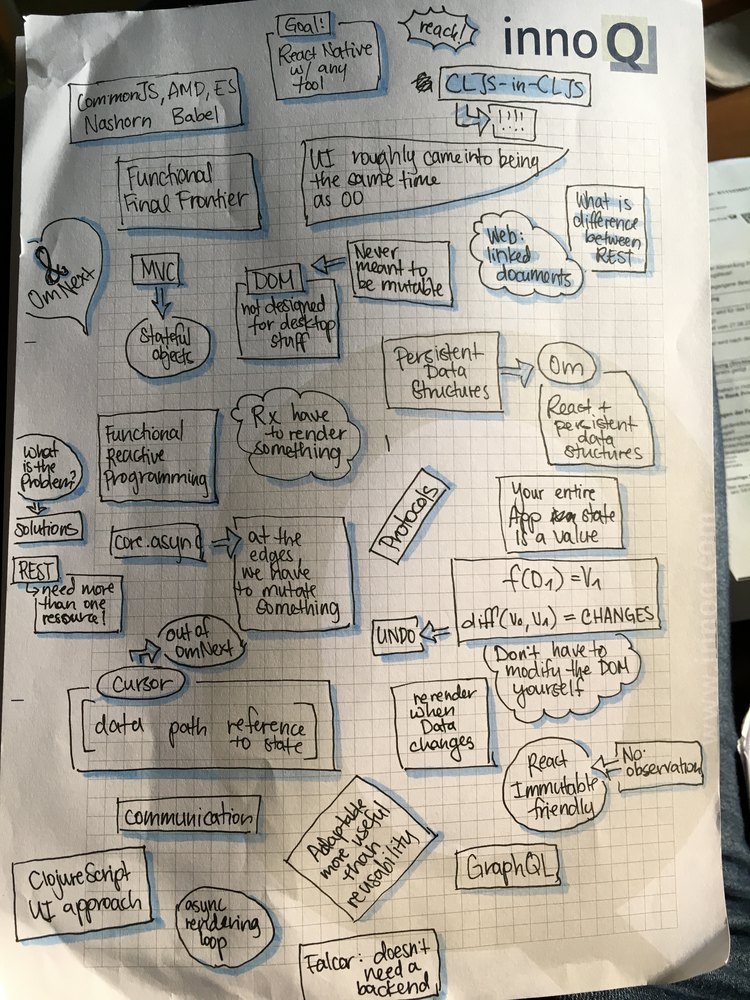 Goal:
React Native
w/ any
tool
react!
innoQ
CommonJS, AMD, ES
Nashorn Babel
CLJS-in-CLJS
!!!!
Functional
Final Frontier
UI roughly came into being
the same time
as OO
What is
difference
between
REST
Web:
linked
documents
&
OmNext
MVC
Stateful
objects
DOM
not designed
for desktop
stuff
Never
meant to
be mutable
Persistent
Data
Structures
Om
React +
persistent
data
stuctures
Functional
Reactive
Programming
Rx have
to render
something
What
is the
Problem?
solutions
REST
need more
than one
resource!
core.async
at the
edges
we have
to mutate
something
Protocols
Your entire
App state
is a value
f(D₁) = V₁
diff(V₀, V₁) = CHANGES
UNDO
Don't have to
modify the DOM
yourself
out of
OmNext
Cursor
[data path reference
to state]
rerender
when
Data
changes
React
Immutable
friendly
No
observation
communication
Adaptable
more useful
than
reusability
GraphQL
ClojureScript
UI approach
async
rendering
loop
Falcor: doesn't
need a
backend